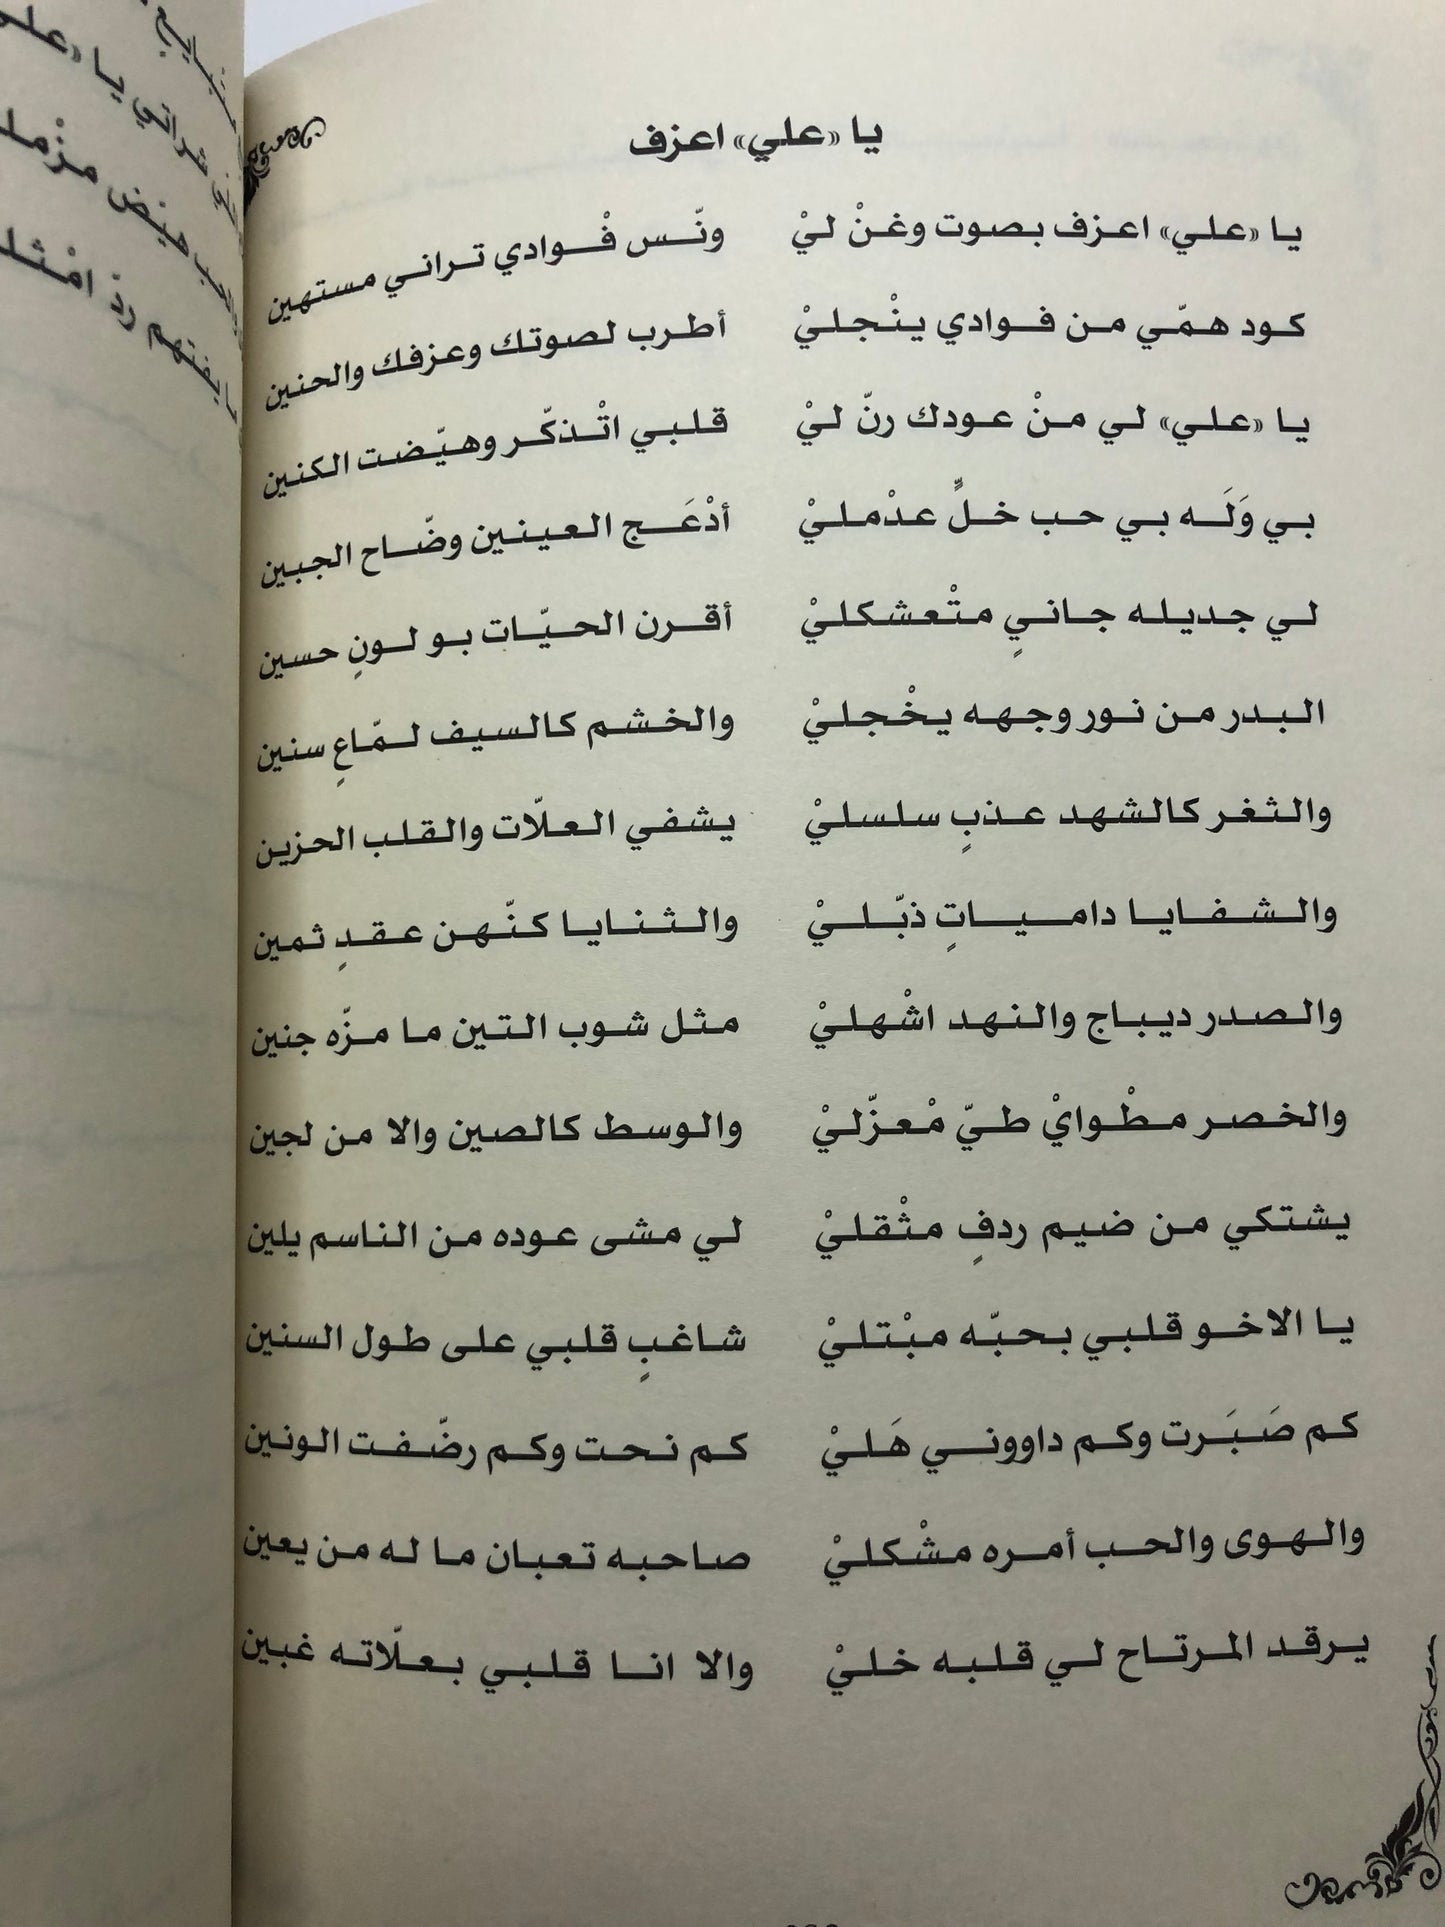 يا «علي» اعزف
يا «علي» اعزف بصوت وغنْ ليْ ونّس فْوادي تراني مستهين
كود همّي من فوادي ينْجليْ أطرب لصوتك وعزفك والحنين
يا «علي» لي منْ عودك رنّ ليْ قلبي اتْذكّر وهيّضت الكنين
بي وَلَه بي حب خلٍّ عدْمليْ أدْعَج العينين وضّاح الجبين
لي جديله جانيٍ متْعشكليْ أقرن الحيّات بو لونٍ حسين
البدر من نور وجهه يخْجليْ والخشم كالسيف لمّاعٍ سنين
والثغر كالشهد عذبٍ سلسليْ يشفي العلّات والقلب الحزين
والشفايا دامياتٍ ذبّليْ والثنايا كنّهن عقدٍ ثمين
والصدر ديباج والنهد اشْهليْ مثل شوب التين ما مزّه جنين
والخصر مطْوايْ طيّ مْعزّليْ والوسط كالصين والا من لجين
يشتكي من ضيم ردفٍ مثْقليْ لي مشى عوده من الناسم يلين
يا الاخو قلبي بحبّه مبْتليْ شاغبٍ قلبي على طول السنين
كم صَبَرت وكم داووني هَليْ كم نحت وكم رضّفت الونين
والهوى والحب أمره مشْكليْ صاحبه تعبان ما له من يعين
يرقد المرتاح لي قلبه خليْ والا انا قلبي بعلّاته غبين